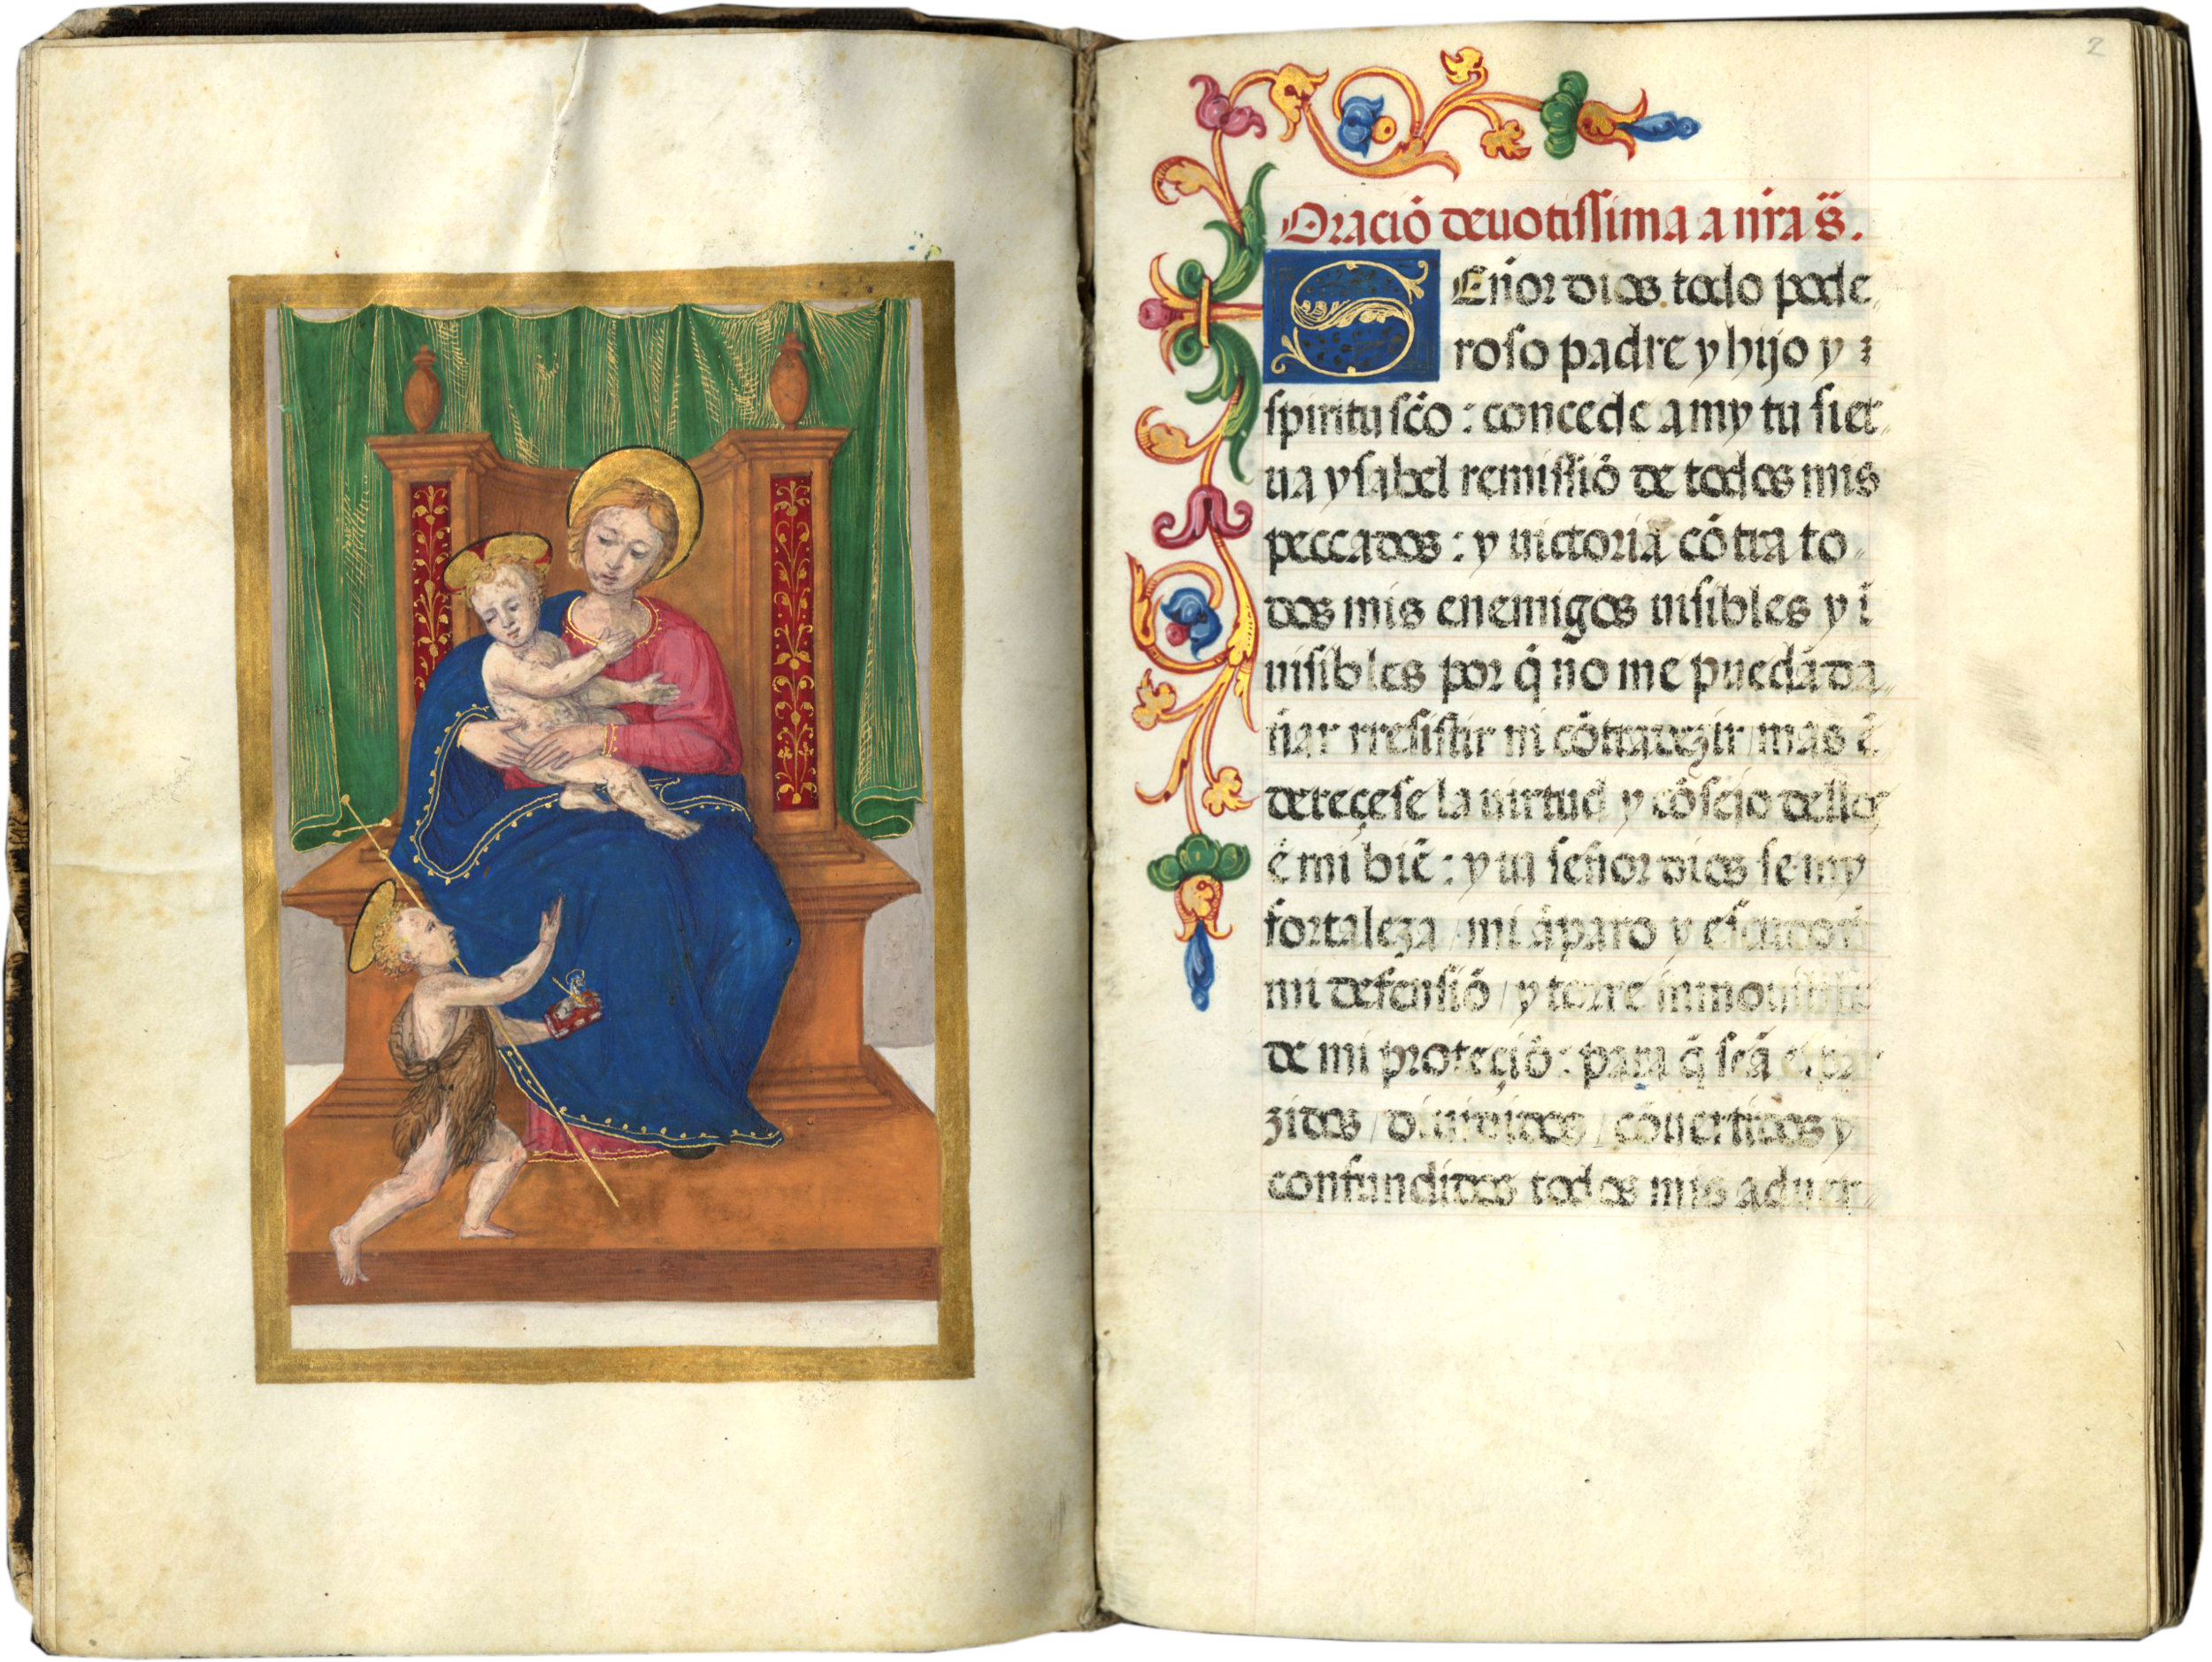 2
Oració deuotissima a nr̃a s̃.
SEñor dios todo pode
roso padre y hijo y
spiritu scõ : concede a my tu sier
ua ysabel remissiõ de todos mis
peccados : y uictoria cõtra to
dos mis enemigos uisibles y ĩ
uisibles por q̃ no me puedã da
ñar rresistir ni cõtradezir / mas ẽ
dereçese la uirtud y cõsejo dellos
ẽ mi biẽ : y tu señor dios se my
fortaleza / mi ãparo y
mi defensiõ / y torre
de mi proteçiõ : para q̃ seã
zidos / diuididos / cõuertidos y
confundidos todos mis aduer